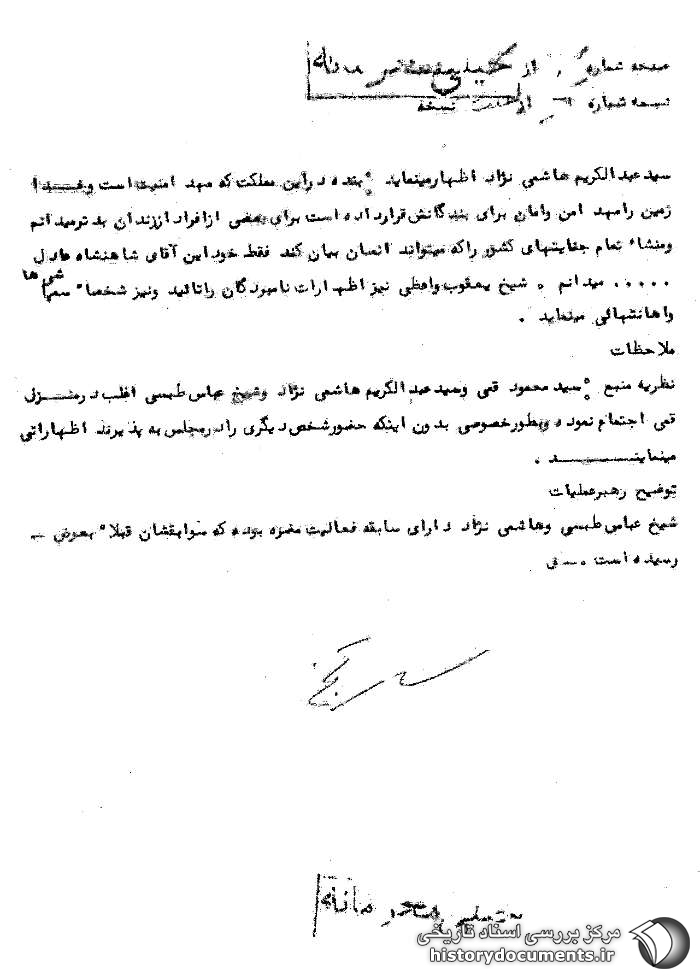 صفحه شماره از خیلی محرمانه
نسخه شماره از نسخه
سیدعبدالکریم هاشمی نژاد اظهارمینماید : بنده دراین مملکت که مهد امنیت است وخـــدا
زمین رامهد امن وامان برای بندگانش قرارداده است برای بعضی ازافراد اززندان بدترمیدانم
ومنشاء تمام جنایتهای کشور راکه میتواند انسان بیان کند فقط خوداین آقای شاهنشاه عادل
..... میدانم . شیخ یعقوب واعظی نیز اظهارات نامبردگان راتائید ونیز شخصا"
واهانتهائی مینماید .
ملاحظات
نظریه منبع : سیدمحمود قمی وسیدعبدالکریم هاشمی نژاد وشیخ عباس طبسی اغلب درمنـــزل
قمی اجتماع نموده وبطورخصوصی بدون اینکه حضورشخص دیگری رادرمجلس به پذیرند اظهاراتی
مینماینــــــــد .
توضیح رهبرعملیات
شیخ عباس طبسی وهاشمی نژاد دارای سابقه فعالیت مضره بوده که سوابقشان قبلا" بعرض –
رسیده است .
خیلی محرمانه
مرکز بررسی اسناد تاریخی
historydocuments.ir